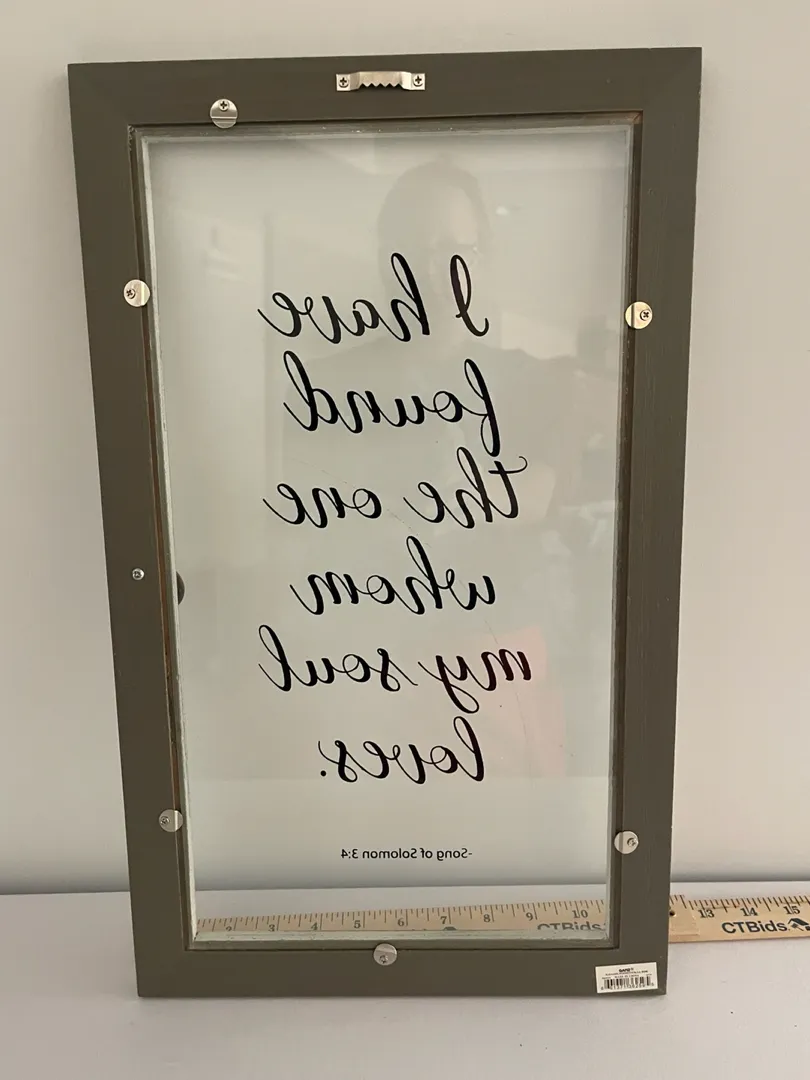 I have
found
the one
whom
my soul
loves.
-Song of Solomon 3:4
2 3 4 5 6 7 8 9 10 13 14 15
CTBids
CTBids.